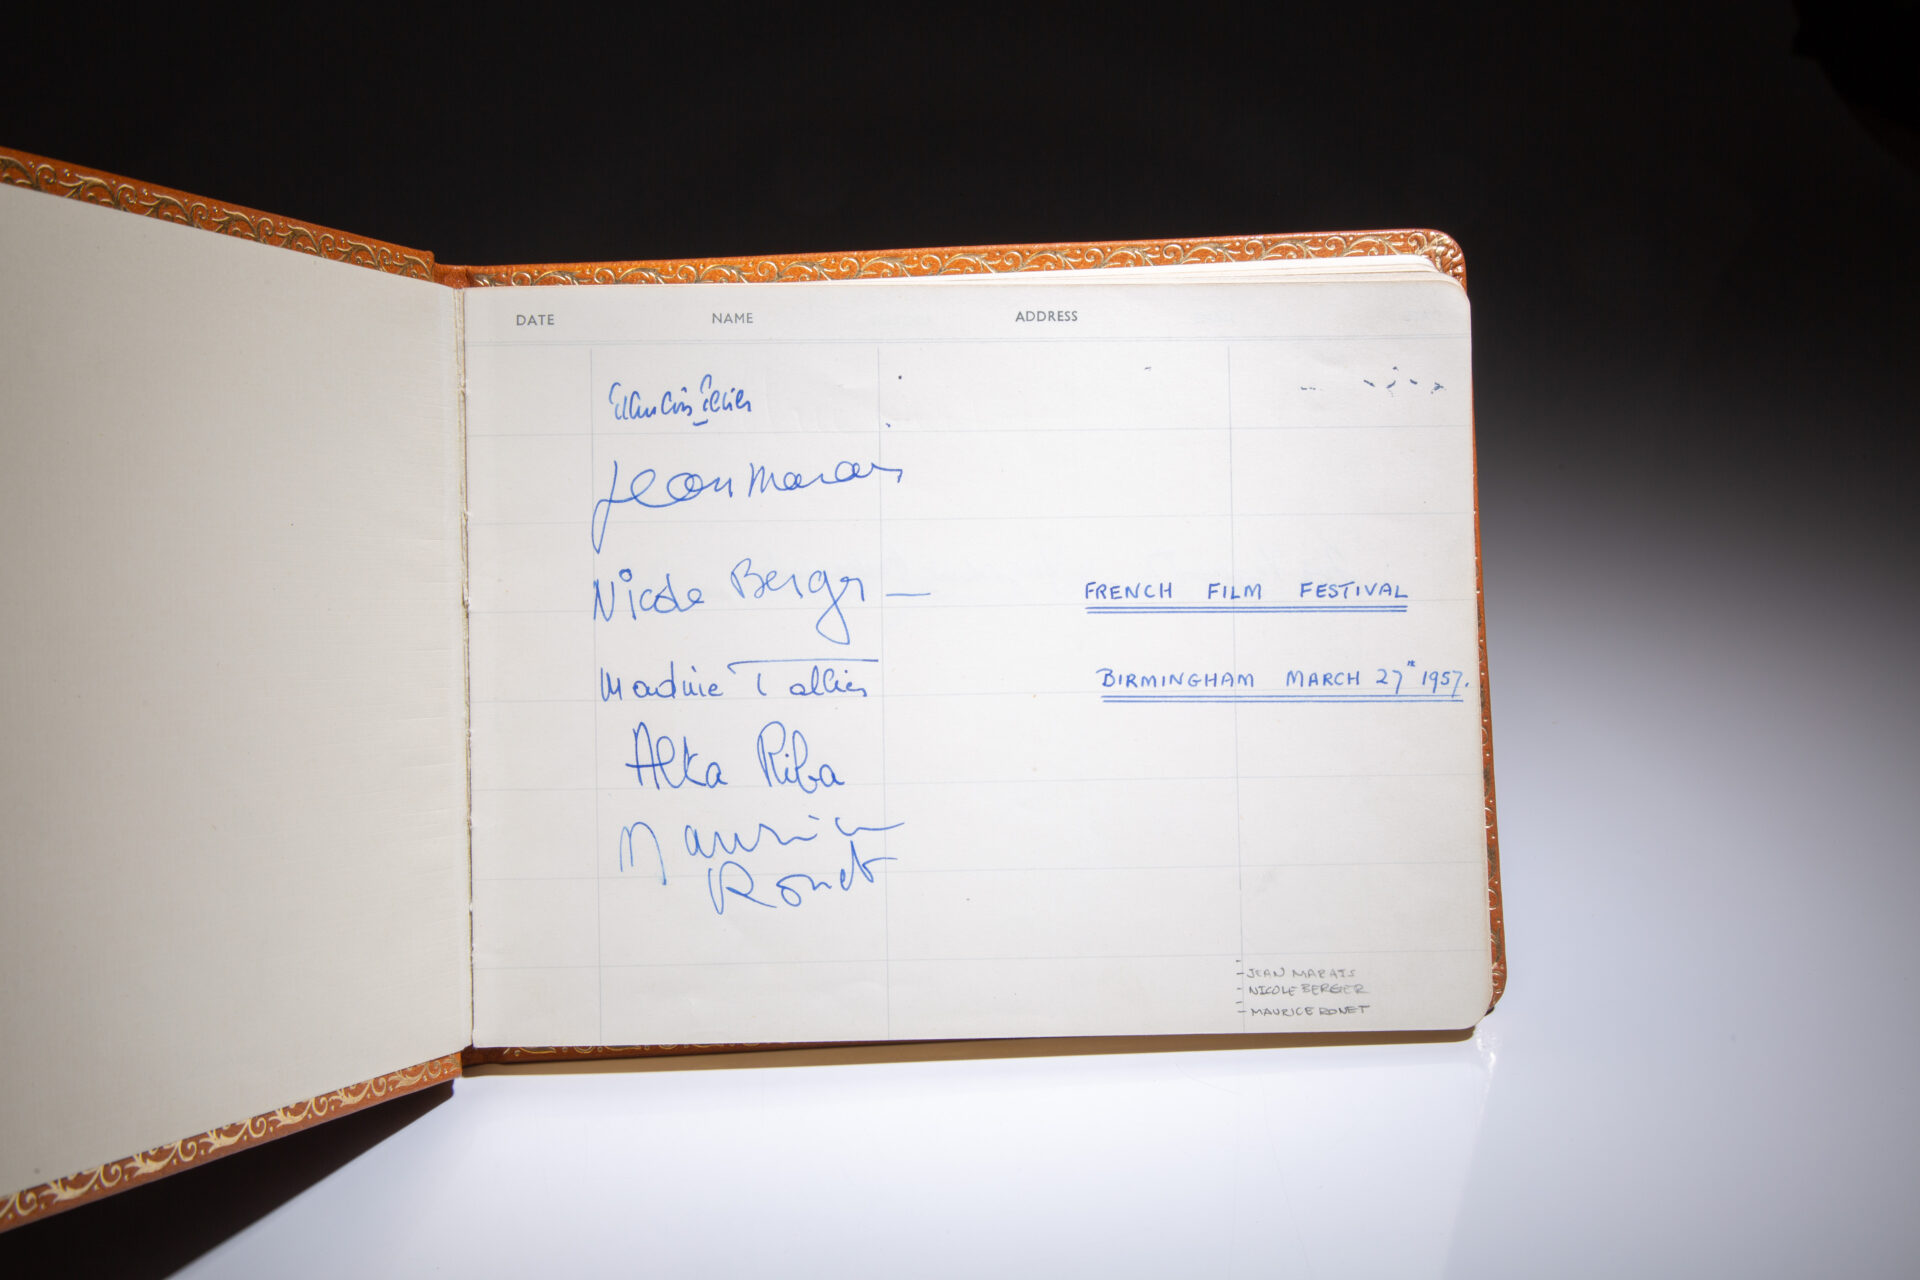 DATE NAME ADDRESS
Jean Marais
Nicole Berger —
FRENCH FILM FESTIVAL
BIRMINGHAM MARCH 27th 1957.
Alka Riba
Maurice
Ronet
- JEAN MARAIS
- NICOLE BERGER
- MAURICE RONET